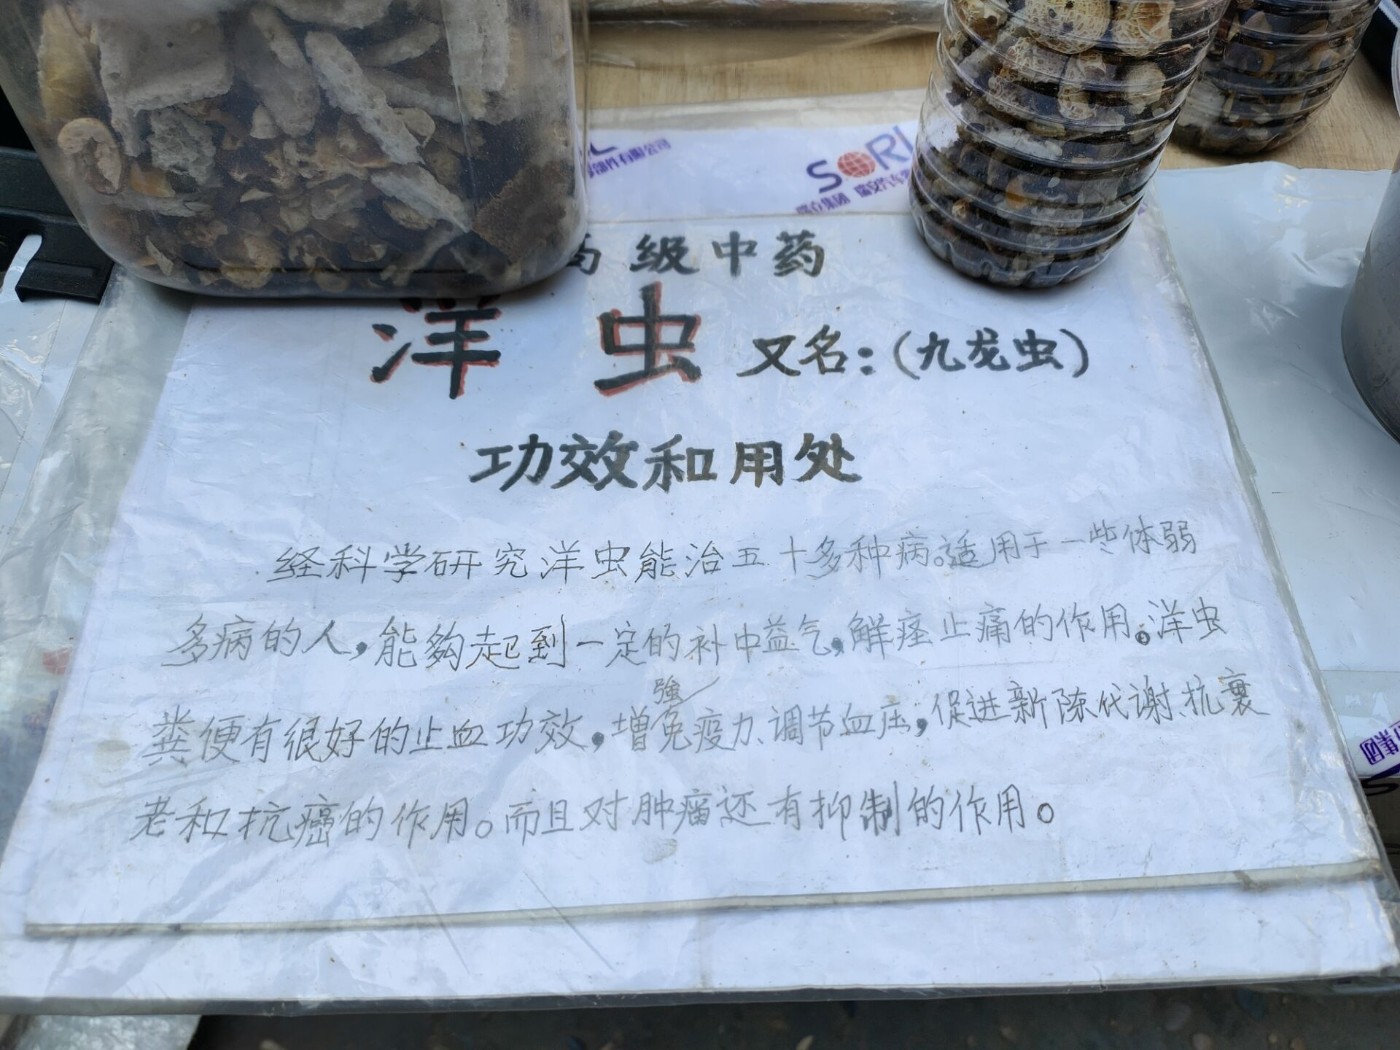 部件有限公司
SORL
瑞立集团 瑞安汽车零
高级中药
洋虫 又名：（九龙虫）
功效和用处
经科学研究洋虫能治五十多种病。适用于一些体弱
多病的人，能夠起到一定的补中益气，解痉止痛的作用。洋虫
粪便有很好的止血功效，增強免疫力、调节血压，促进新陈代谢、抗衰
老和抗癌的作用。而且对肿瘤还有抑制的作用。
集团